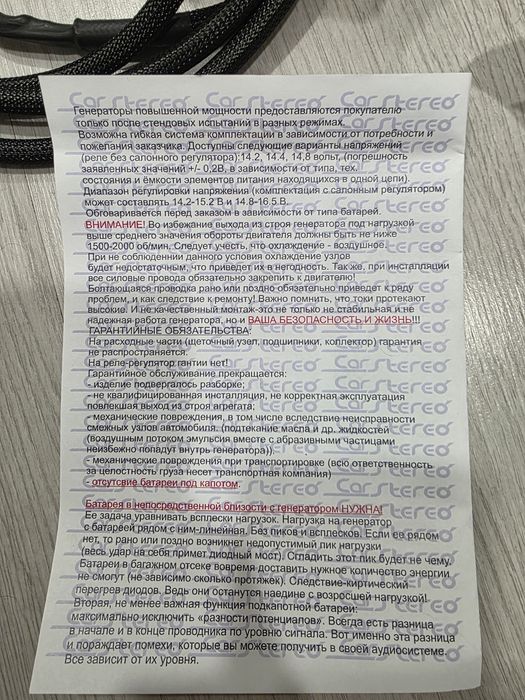 Генераторы повышенной мощности предоставляются покупателю
только после стендовых испытаний в разных режимах.
Возможна гибкая система комплектации в зависимости от потребности и
пожелания заказчика. Доступны следующие варианты напряжений
(реле без салонного регулятора):14.2, 14.4, 14,8 вольт, (погрешность
заявленных значений +/- 0,2В, в зависимости от типа, тех.
состояния и ёмкости элементов питания находящихся в одной цепи).
Диапазон регулировки напряжения (комплектация с салонным регулятором)
может составлять 14.2-15.2 В и 14.8-16.5 В.
Обговаривается перед заказом в зависимости от типа батарей.
ВНИМАНИЕ! Во избежание выхода из строя генератора под нагрузкой
выше среднего значения обороты двигателя должны быть не ниже
1500-2000 об/мин. Следует учесть, что охлаждение - воздушное.
При не соблюдении данного условия охлаждение узлов
будет недостаточным, что приведит их в негодность. Так же, при инсталляции
все силовые провода обязательно закрепить к двигателю!
Болтающаяся проводка рано или поздно обязательно приведет к ряду
проблем, и как следствие к ремонту! Важно помнить, что токи протекают
высоки. И не качественный монтаж-это не только не стабильная и не
надежная работа генератора, но и ВАША БЕЗОПАСНОСТЬ И ЖИЗНЬ!!!
ГАРАНТИЙНЫЕ ОБЯЗАТЕЛЬСТВА:
На расходные части (щеточный узел, подшипники, коллектор) гарантия
не распространяется.
На реле-регулятор гантии нет!
Гарантийное обслуживание прекращается:
- изделие подвергалось разборке;
- не квалифицированная инсталляция, не корректная эксплуатация
повлекшая выход из строя агрегата;
- механические повреждения, в том числе вследствие неисправности
смежных узлов автомобиля. (подтекание масла и др. жидкостей
(воздушным потоком эмульсия вместе с абразивными частицами
неизбежно попадут внутрь генератора)).
- механические повреждения при транспортировке (всю ответственность
за целостность груза несет транспортная компания)
- отсутсвие батареи под капотом.
Батарея в непосредственной близости с генератором НУЖНА!
Ее задача уравнивать всплески нагрузок. Нагрузка на генератор
с батареей рядом с ним-линейная. Без пиков и всплесков. Если ее рядом
нет, то рано или поздно возникнет недопустимый пик нагрузки
(весь удар на себя примет диодный мост). Сгладить этот пик будет не чему.
Батареи в багажном отсеке вовремя доставить нужное количество энергии
не смогут (не зависимо сколько протяжек). Следствие-киртический
перегрев диодов. Ведь они останутся наедине с возросшей нагрузкой!
Вторая, не менее важная функция подкапотной батареи:
максимально исключить «разности потенциалов». Всегда есть разница
в начале и в конце проводника по уровню сигнала. Вот именно эта разница
и пораждает помехи, которые вы можете получить в своей аудиосистеме.
Все зависит от их уровня.